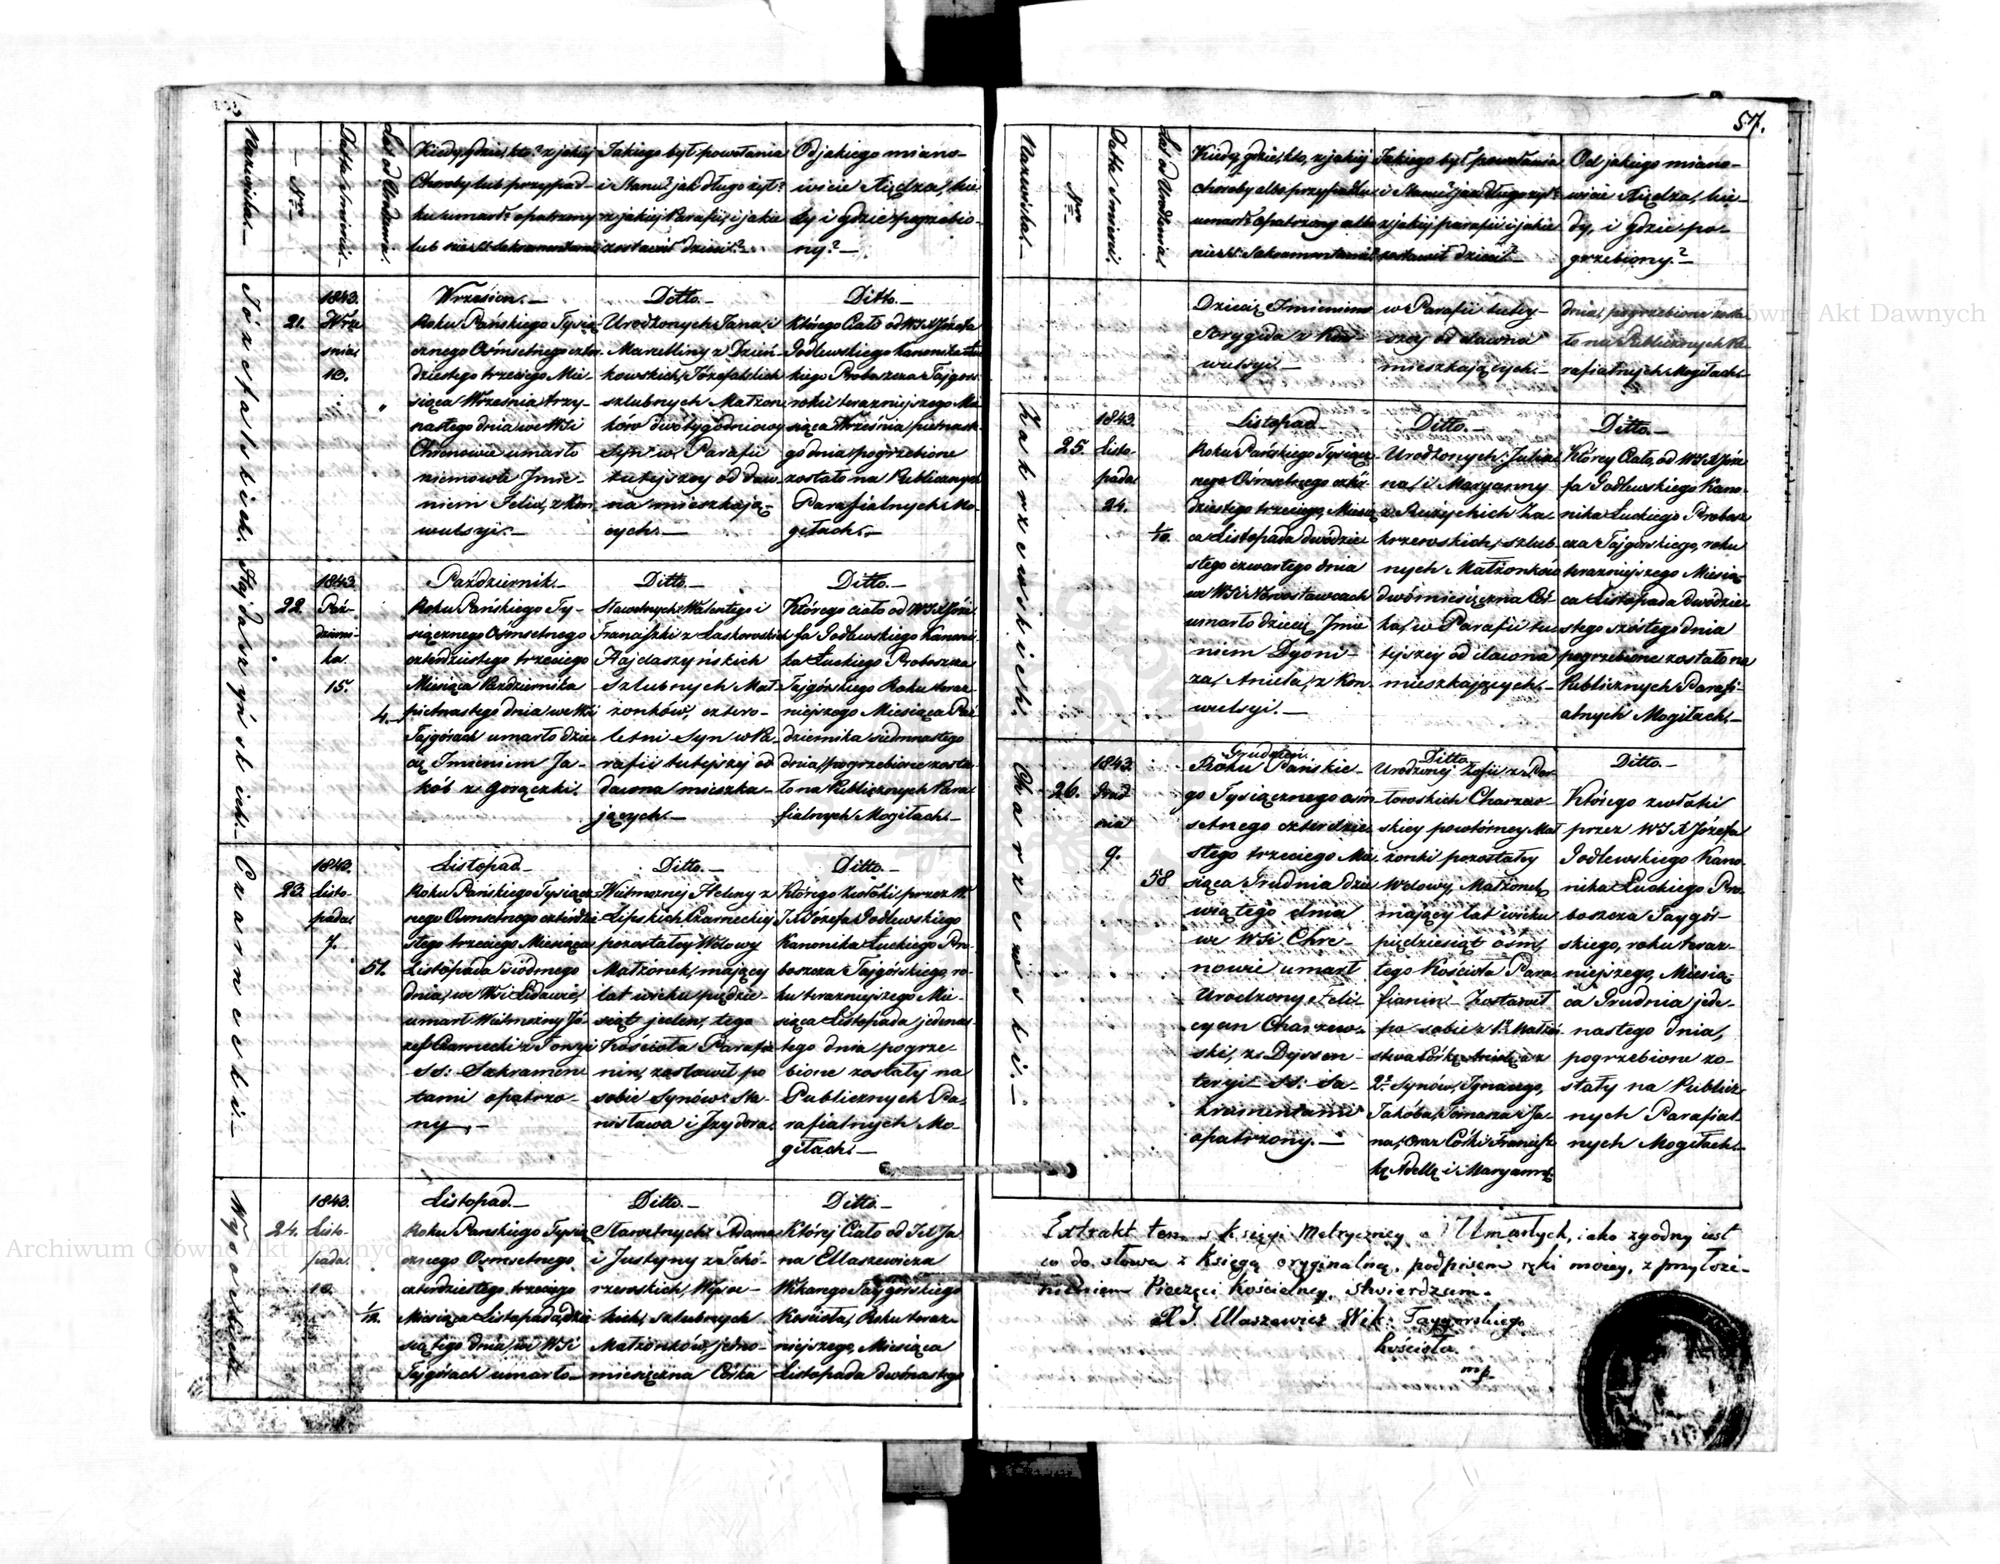 57.
Nazwiska.
Nro
Data śmierci.
Lat od Urodzenia.
Kiedy, gdzie, kto? z jakiej
Choroby lub przypad-
ku umarł? opatrzony
lub nie SS. Sakramentami
Jakiego był powołania
i Stanu? jak długo żył?
z jakiej Parafii, i jakie
zostawił dzieci?
Od jakiego miano-
wicie Xiędza, kie-
dy i gdzie pogrzebio-
ny?
Józefalskich.
21.
1843.
Wrze
śnia
13.
Wrzesień.
Roku Pańskiego Tysią
cznego Ośmsetnego czter
dziestego trzeciego Mie-
siąca Września trzy-
nastego dnia we WSi
Chrenowie umarło
niemowle Imie-
niem Felix, z Kon
wulsyi.
Ditto.
Urodzonych Jana, i
Marcelliny z Dzień-
kowskich, Józefalskich
szlubnych Małżon
ków dwótygodniowy
Syn w Parafii
tutejszey od daw
na mieszkają-
cych.
Ditto.
którego Ciało od WJX Józefa
Godlewskiego Kanonika Łuc
kiego Proboszcza Tajgors
roku terazniejszego Mie
siąca Września piętnaste
go dnia pogrzebione
zostało na Publicznych
Parafialnych Mo-
giłach.
Hajdaszyńskich.
22.
1843.
Paź-
dzierni-
ka
15.
4.
Październik.
Roku Pańskiego Ty-
siącznego Ośmsetnego
czterdziestego trzeciego
Miesiąca Października
piętnastego dnia we WSi
Tajgórach umarło dzie
cię Imieniem Ja-
kób z gorączki.
Ditto.
Sławetnych Walentego i
Franciszki z Laskowskich
Hajdaszyńskich
szlubnych Mał-
żonków, cztero-
letni Syn w Pa-
rafii tutejszej od
dawna mieszka-
jących.
Ditto.
Którego ciało od WJX Józe
fa Godlewskiego Kanoni
ka Łuckiego Proboszcza
Tajgórskiego Roku teraz
niejszego Miesiąca Paź
dziernika siedmnastego
dnia pogrzebione zosta
ło na Publicznych Para
fialnych Mogiłach.
Czarnecki.
23.
1843.
Listo-
pada
7.
51.
Listopad.
Roku Pańskiego Tysiącz
nego Ośmsetnego czterdzie
stego trzeciego Miesiąca
Listopada siódmego
dnia, we WSi Lidawie,
umarł Wielmożny Jó-
zef Czarnecki z
SS: Sakramen
tami opatrzo-
ny.
Ditto.
Wielmożnej Heleny z
Lipskich Czarneckiej
pozostałey Wdowy
Małżonek, mający
lat wieku pięćdzie-
siąt jeden, tego
Kościoła Parafia
nin, zostawił po
sobie Synów: Sta-
nisława i Izydora.
Ditto.
Którego Zwłoki przez W
JX Józefa Godlewskiego
Kanonika Łuckiego Pro-
boszcza Tajgórskiego, ro-
ku terazniejszego Mie-
siąca Listopada jedenas-
tego dnia pogrze-
bione zostały na
Publicznych Pa-
rafialnych Mo-
giłach.
Wysockich
24.
1843.
Listo-
pada
10.
1/12.
Listopad.
Roku Pańskiego Tysią
cznego Ośmsetnego
czterdziestego trzeciego
Miesiąca Listopada, dzie
siątego dnia, we WSi
Tajgórach umarło
Ditto.
Sławetnych Adama
i Justyny z Tchó-
rzewskich, Wyso-
kich, szlubnych
Małżonków, jedno-
miesięczna Córka
Ditto.
Której Ciało od JX Ja
na Ellaszewicza
Wikarego Taygórskiego
Kościoła, Roku teraz-
niejszego, Miesiąca
Listopada dwónastego
Nazwiska.
Nro
Data śmierci.
Lat od Urodzenia
Kiedy, gdzie, kto, z jakiej
choroby albo przypadku
umarł? opatrzony albo
nie SS: Sakramentami?
Jakiego był powołania
i Stanu? jak długo żył?
z jakiej parafii i jakie
zostawił dzieci?
Od jakiego miano-
wicie Xiędza, kie-
dy, i gdzie po-
grzebiony?
Dziecię Imieniem
Brygida z Kon-
wulsyi.
w Parafii tutey-
szey od dawna
mieszkających.
dnia, pogrzebione zosta
ło na Publicznych Pa-
rafialnych Mogiłach.
Zakrzewskich.
25.
1843.
Listo-
pada
24.
1/10.
Listopad
Roku Pańskiego Tysiącz-
nego Ośmsetnego czter-
dziestego trzeciego, Miesią
ca Listopada dwódzie
stego czwartego dnia
we WSi
umarło dziecię Imie
niem Dyoni-
za, Aniela, z Kon-
wulsyi.
Ditto.
Urodzonych: Julia-
na, i Maryanny
z Za
krzewskich, szlub-
nych Małżonków
dwómiesięczna Cór
ka, w Parafii tu
tejszej od dawna
mieszkających.
Ditto.
Którey Ciało, od WJX Józe
fa Godlewskiego Kano-
nika Łuckiego Probosz
cza Tajgórskiego, roku
terazniejszego Miesią-
ca Listopada Dwódzie
stego szóstego dnia
pogrzebione zostało na
Publicznych Parafi-
alnych Mogiłach.
Charzewski.
26.
1843.
Grud
nia
9.
58
Grudzień.
Roku Pańskie-
go Tysiącznego ośm
setnego czterdzie
stego trzeciego Mie
siąca Grudnia dzie
wiątego dnia
we WSi Chre-
nowie umarł
Urodzony Feli-
cyan Charzew-
ski, z Dyssen-
teryi SS: Sa-
kramentami
opatrzony.
Ditto.
Urodzonej Zofii z
Charzew-
skiey powtórney Mał
żonki pozostałey
Wdowy, Małżonek,
mający lat wieku
pięćdziesiąt ośm,
tego Kościoła Para
fianin Zostawił
po sobie z 1go Małżeń
stwa Córkę Anielę a z
2go Synów, Ignacego,
Jakóba, Tomasza i Ja-
na, oraz Córki Francisz
kę, Adellę i Maryannę
Ditto.
Którego zwłoki
przez WJX Józefa
Godlewskiego Kano-
nika Łuckiego Pro
boszcza Taygór-
skiego, roku teraz-
niejszego, Miesią-
ca Grudnia jede-
nastego dnia,
pogrzebione zo-
stały na Publicz-
nych Parafial-
nych Mogiłach.
Extrakt ten z księgi Metryczney o Umarłych, iako zgodny iest
co do słowa z księgą oryginalną, podpisem ręki moiey, z przyłoże-
niem Pieczęci Kościelney, stwierdzam.
X. J. Ellaszewicz Wik. Taygorskiego
Kościoła.
mp.
Archiwum Główne Akt Dawnych
Główne Akt Dawnych